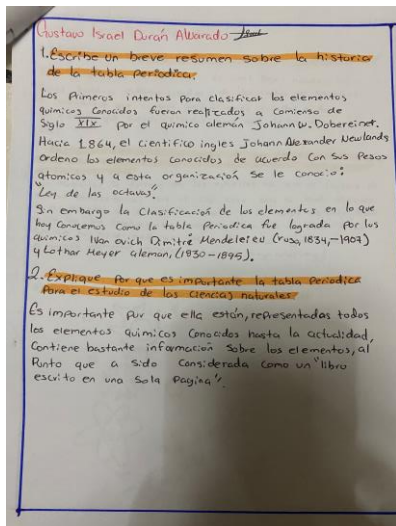 Gustavo Israel Durán Alvarado
1. Escribe un breve resumen sobre la historia
de la tabla periodica.
Los Primeros intentos para clasificar los elementos
quimicos Conocidos fueron realizados a Comienso de
Siglo XIX por el quimico alemán Johann W. Dobereiner.
Hacia 1864, el cientifico ingles Johann Alexander Newlands
ordeno los elementos conocidos de acuerdo con sus Pesos
atomicos y a esta organización se le conocio:
"Ley de las octavas".
Sin embargo la Clasificación de los elementos en lo que
hoy Conocemos Como la tabla Periodica fue lograda por los
quimicos Ivan ovich Dmitré Mendeleieu (ruso, 1834,-1907)
y Lothar Meyer aleman, (1830-1895).
2. Explique Por que es importante la tabla periodica
Para el estudio de las ciencias naturales
Es importante Por que ella están, representadas todos
los elementos quimicos Conocidos hasta la actualidad,
Contiene bastante información Sobre los elementos, al
Punto que a sido Considerada como un "libro
escrito en una Sola Pagina".